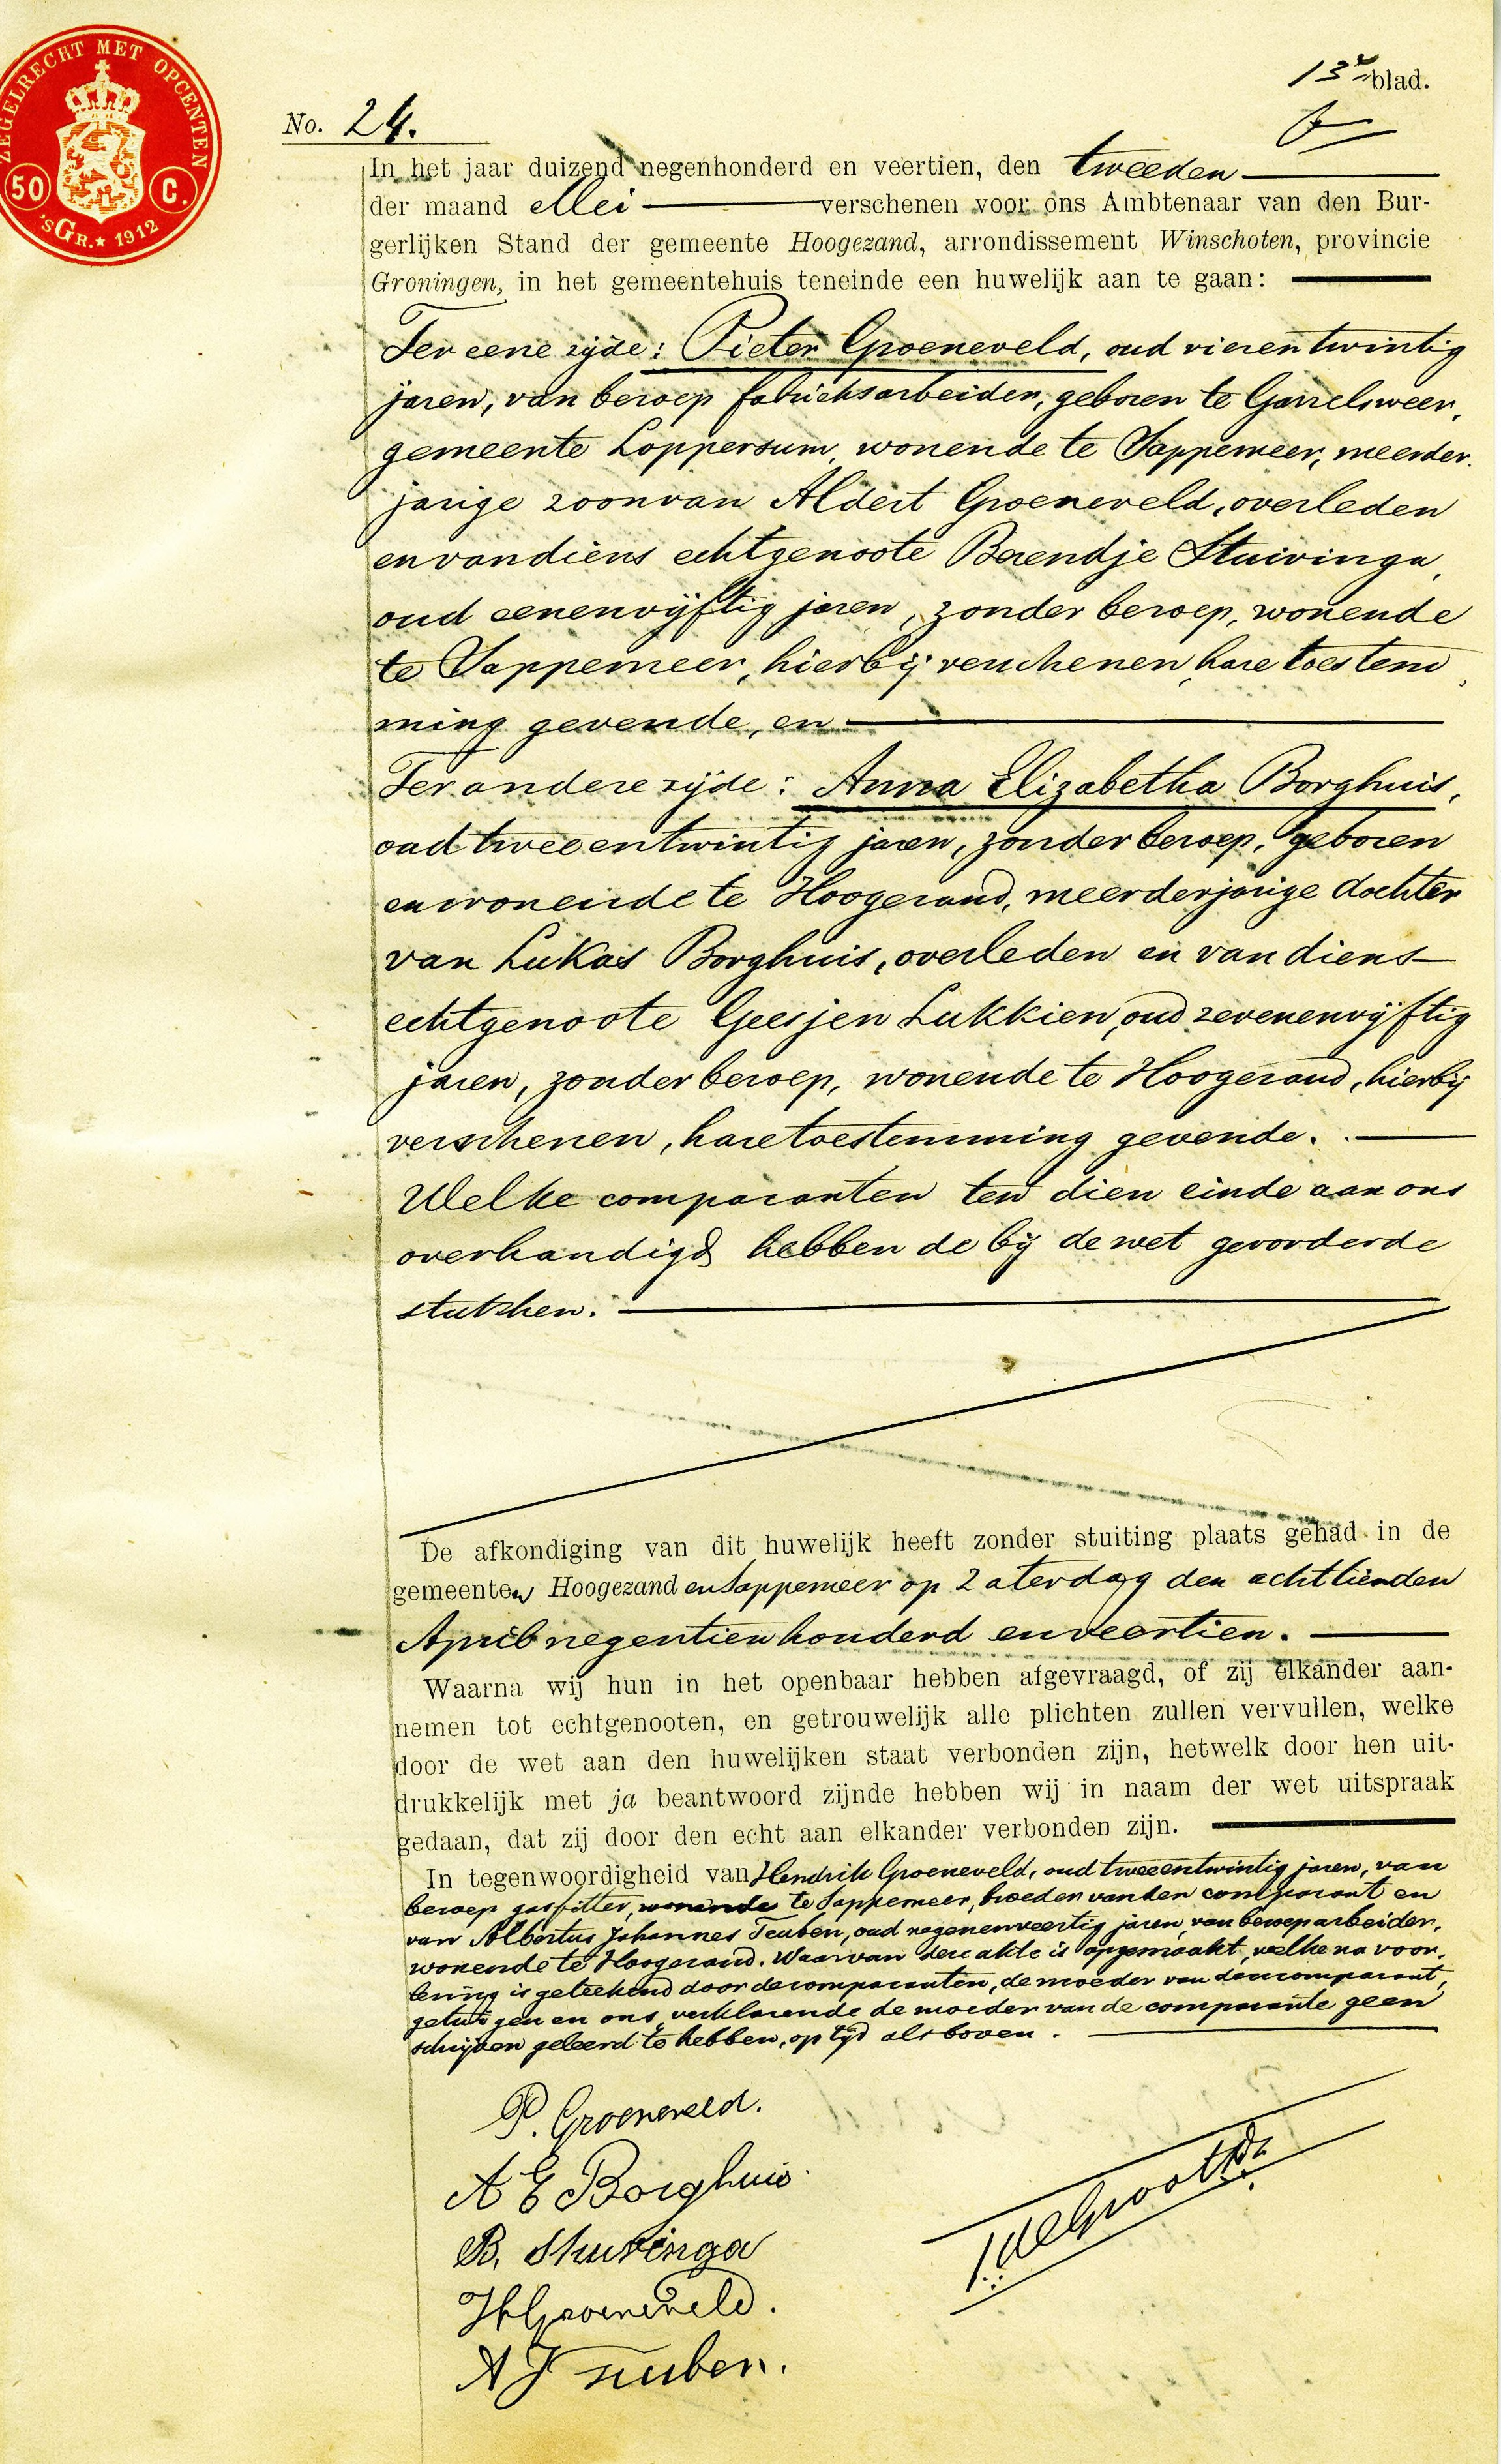 ZEGELRECHT MET OPCENTEN
50 C.
'sGr. ★ 1912
13e blad.
No. 24.
In het jaar duizend negenhonderd en veertien, den tweeden
der maand Mei verschenen voor ons Ambtenaar van den Bur-
gerlijken Stand der gemeente Hoogezand, arrondissement Winschoten, provincie
Groningen, in het gemeentehuis teneinde een huwelijk aan te gaan:
Ter eene zijde: Pieter Groeneveld, oud vierentwintig
jaren, van beroep fabrieksarbeider, geboren te Garrelsweer,
gemeente Loppersum, wonende te Sappemeer, meerder-
jarige zoon van Aldert Groeneveld, overleden
en van diens echtgenoote Berendje Stuivinga,
oud eenenvijftig jaren, zonder beroep, wonende
te Sappemeer, hierbij verschenen, hare toestem
ming gevende, en
Ter andere zijde: Anna Elizabetha Borghuis,
oud tweeentwintig jaren, zonder beroep, geboren
en wonende te Hoogezand, meerderjarige dochter
van Lukas Borghuis, overleden en van diens
echtgenoote Geesjen Lukkien, oud zevenenvijftig
jaren, zonder beroep, wonende te Hoogezand, hierbij
verschenen, hare toestemming gevende.
Welke comparanten ten dien einde aan ons
overhandigd hebben de bij de wet gevorderde
stukken.
De afkondiging van dit huwelijk heeft zonder stuiting plaats gehad in de
gemeenten Hoogezand en Sappemeer op Zaterdag den achttienden
April negentienhonderd en veertien.
Waarna wij hun in het openbaar hebben afgevraagd, of zij elkander aan-
nemen tot echtgenooten, en getrouwelijk alle plichten zullen vervullen, welke
door de wet aan den huwelijken staat verbonden zijn, hetwelk door hen uit-
drukkelijk met ja beantwoord zijnde hebben wij in naam der wet uitspraak
gedaan, dat zij door den echt aan elkander verbonden zijn.
In tegenwoordigheid van Hendrik Groeneveld, oud tweeentwintig jaren, van
beroep gasfitter, wonende te Sappemeer, broeder van den comparant en
van Albertus Johannes Teuben, oud negenenveertig jaren, van beroep arbeider,
wonende te Hoogezand. Waarvan deze akte is opgemaakt, welke na voor-
lezing is geteekend door de comparanten, de moeder van den comparant,
getuigen en ons, verklarende de moeder van de comparante geen
schrijven geleerd te hebben, op tijd als boven.
P. Groeneveld.
A E Borghuis.
B. Stuivinga
H Groeneveld.
A J Teuben.